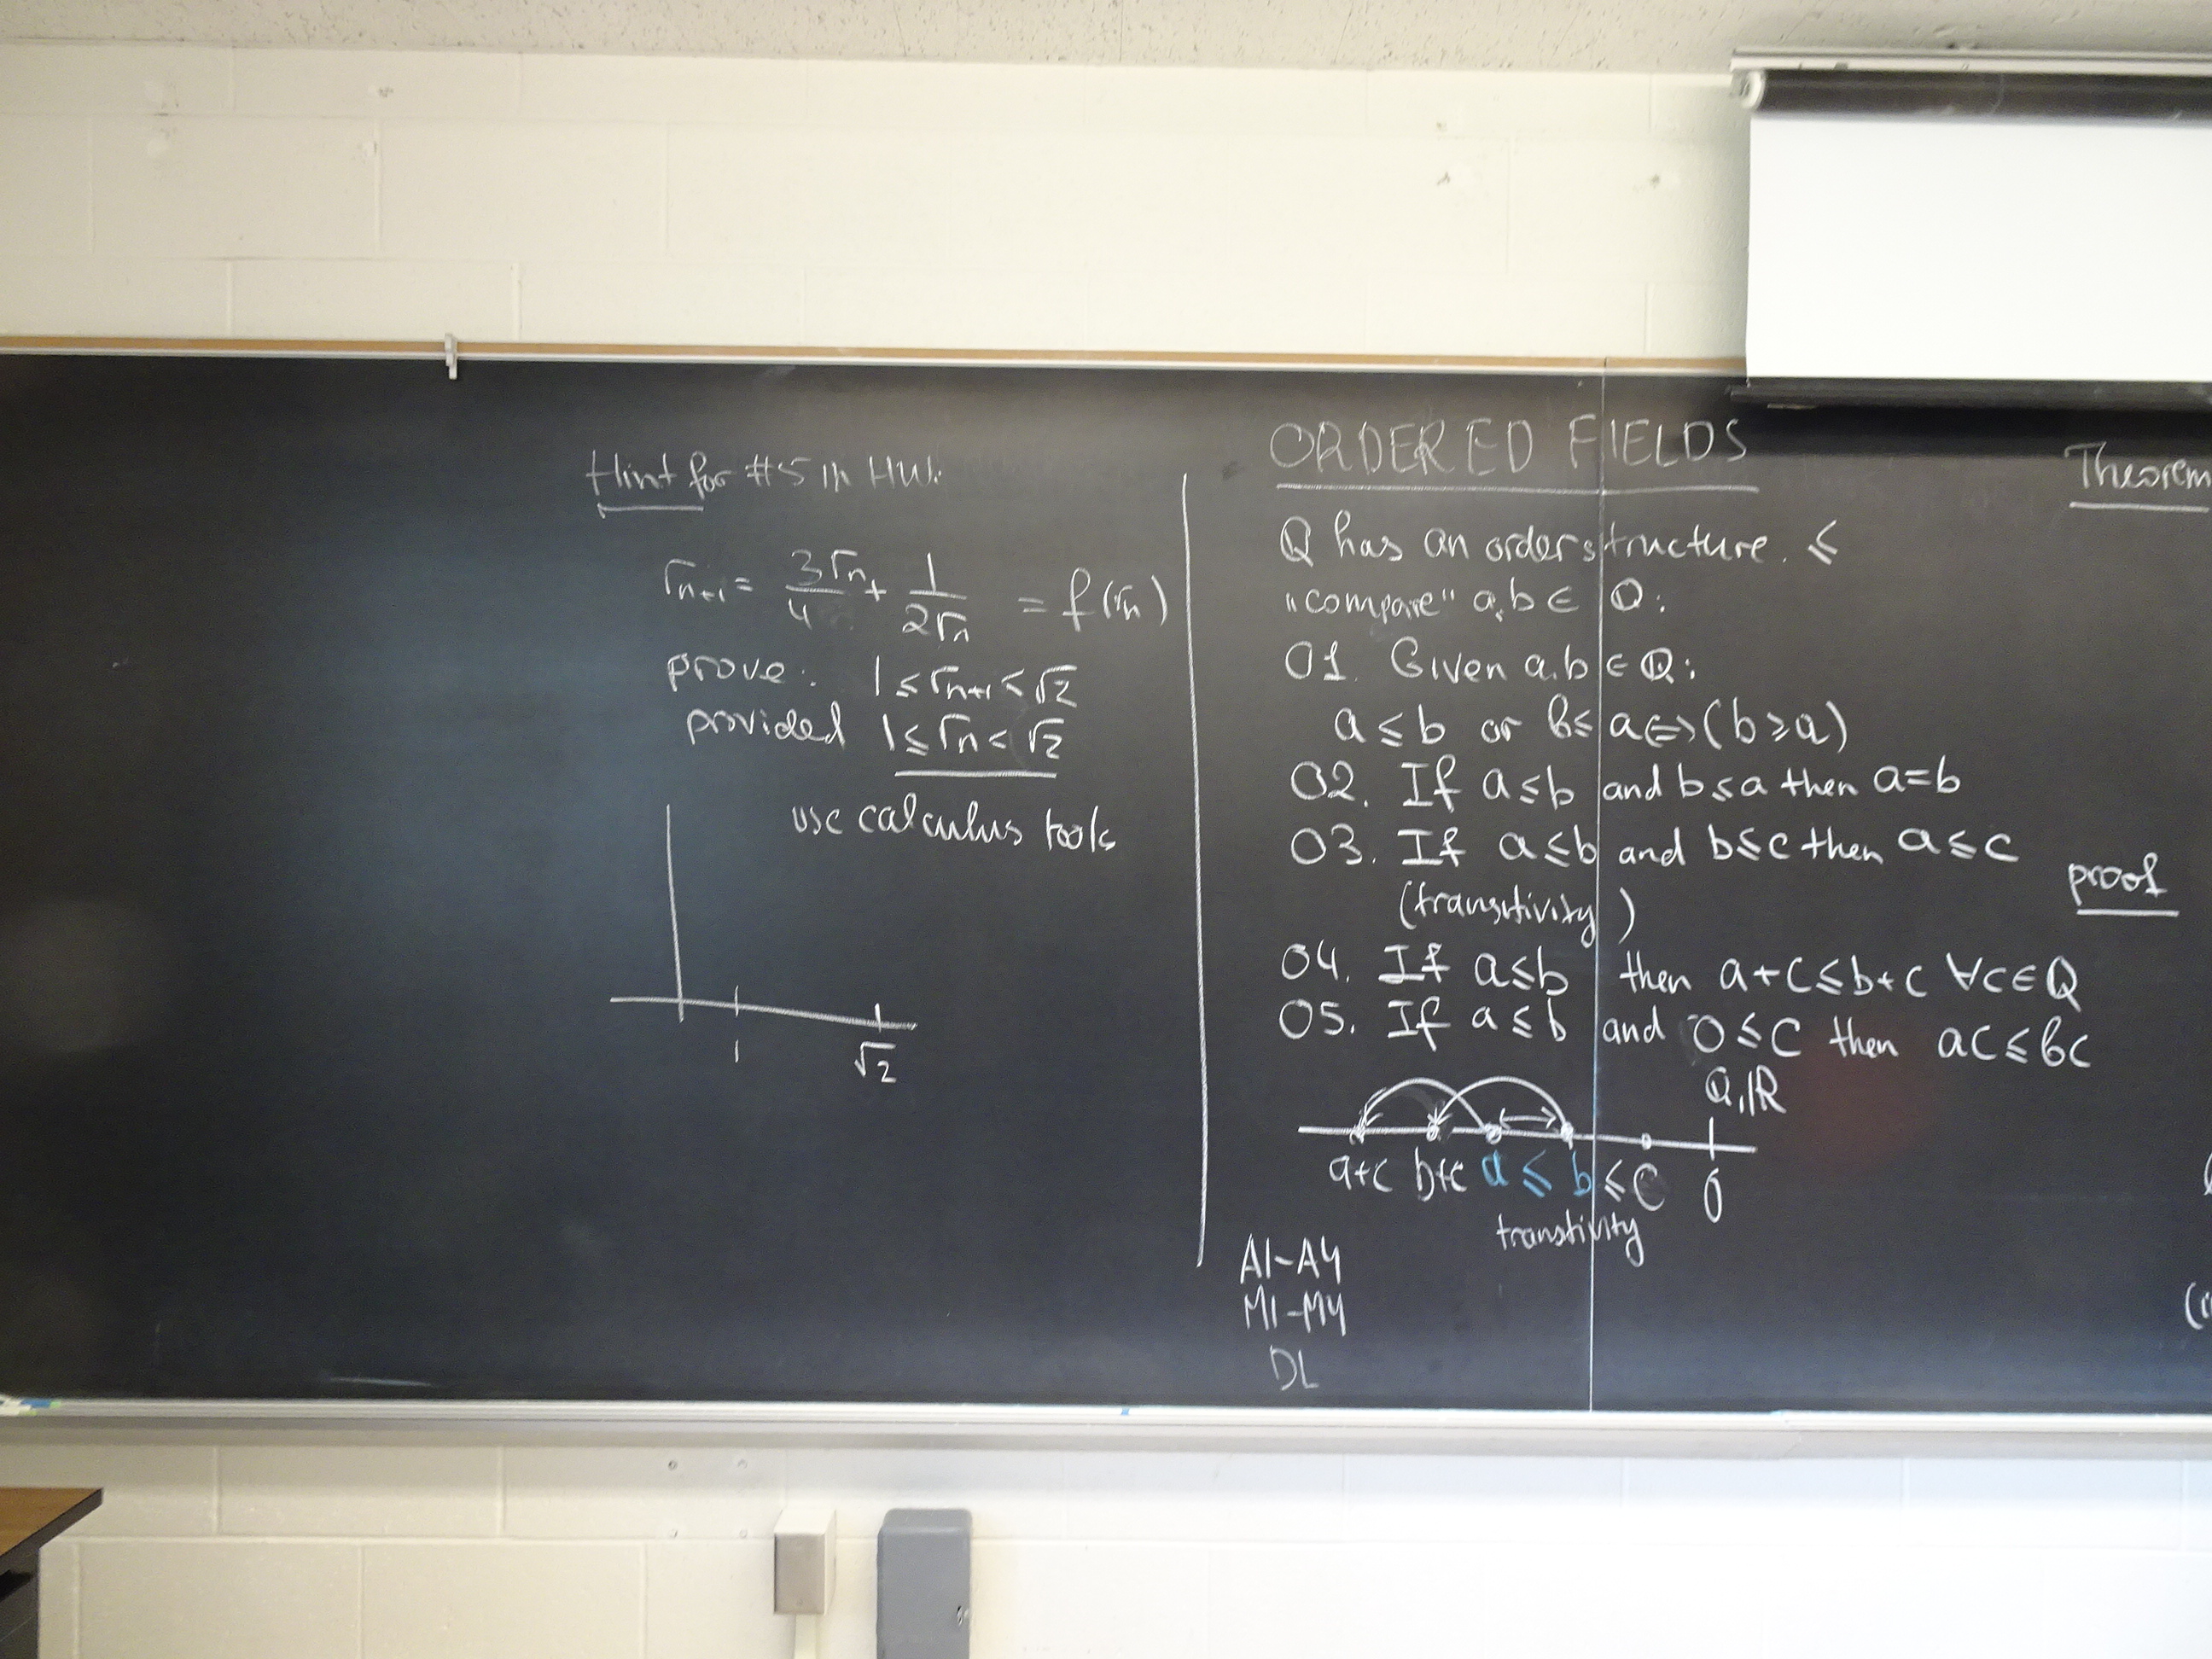 Hint for #5 in HW:
r_{n+1} = 3r_n/4 + 1/(2r_n) = f(r_n)
prove: 1 ≤ r_{n+1} < √2
provided 1 ≤ r_n < √2
use calculus tools
1 √2
ORDERED FIELDS
Q has an order structure. ≤
"compare" a,b ∈ Q:
O1. Given a,b ∈ Q:
a ≤ b or b ≤ a ⇔ (b ≥ a)
O2. If a ≤ b and b ≤ a then a = b
O3. If a ≤ b and b ≤ c then a ≤ c
(transitivity)
O4. If a ≤ b then a + c ≤ b + c ∀c ∈ Q
O5. If a ≤ b and 0 ≤ c then ac ≤ bc
Q, ℝ
a+c b+c a ≤ b ≤ c 0
transtivity
A1-A4
M1-M4
DL
Theorem
proof